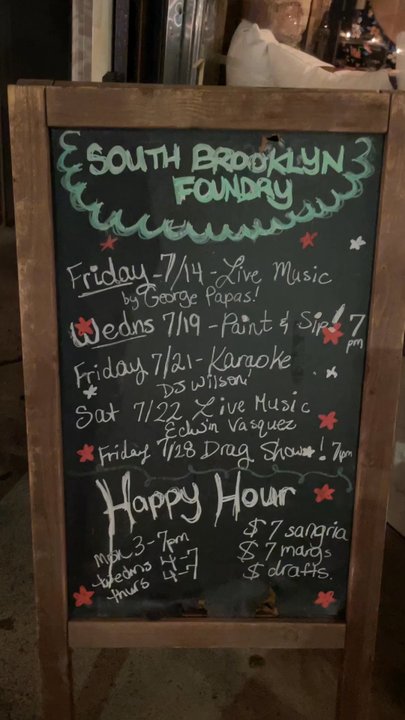 SOUTH BROOKLYN
FOUNDRY
Friday - 7/14 - Live Music
by George Papas!
Wedns 7/19 - Paint & Sip! 7
pm
Friday 7/21 - Karaoke
DJ Wilson
Sat 7/22 Live Music
Edwin Vasquez
Friday 7/28 Drag Show! 7pm
Happy Hour
3-7pm
Wedns 4-7
thurs 4-7
$7 sangria
$7 margs
$ drafts.